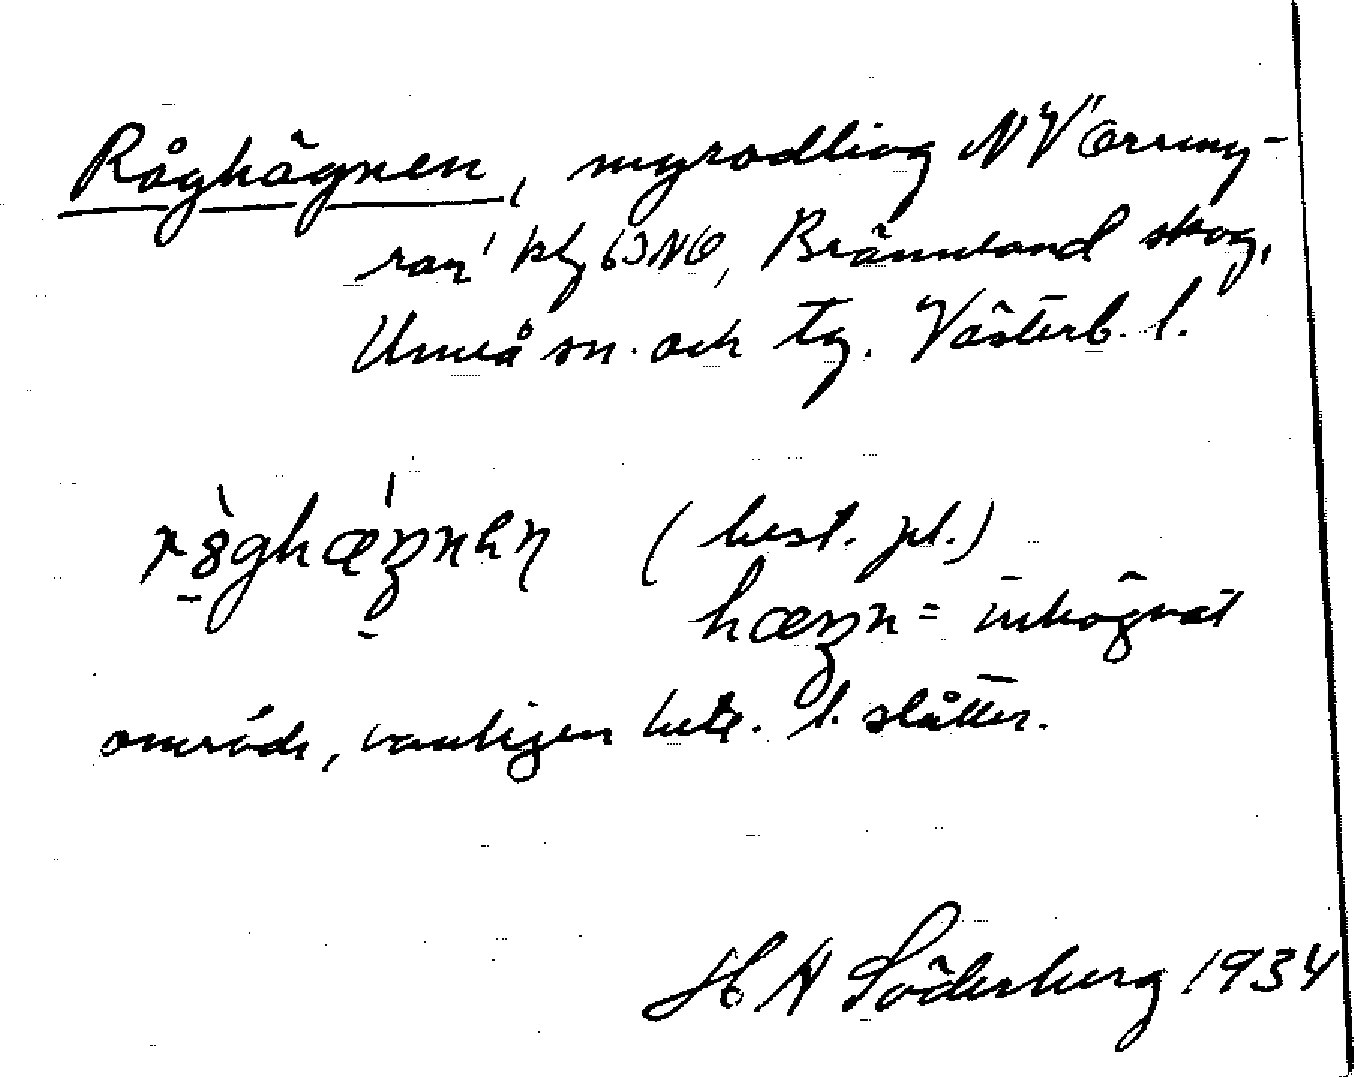 Råghägnen, myrodling NV "Orrmy-
ran" kbl 63NO, Brännland skog,
Umeå sn. och tg. Västerb. l.
(best. pl.)
= inhägnat
område, vanligen bete. l. slåtter.
H A Söderberg 1934